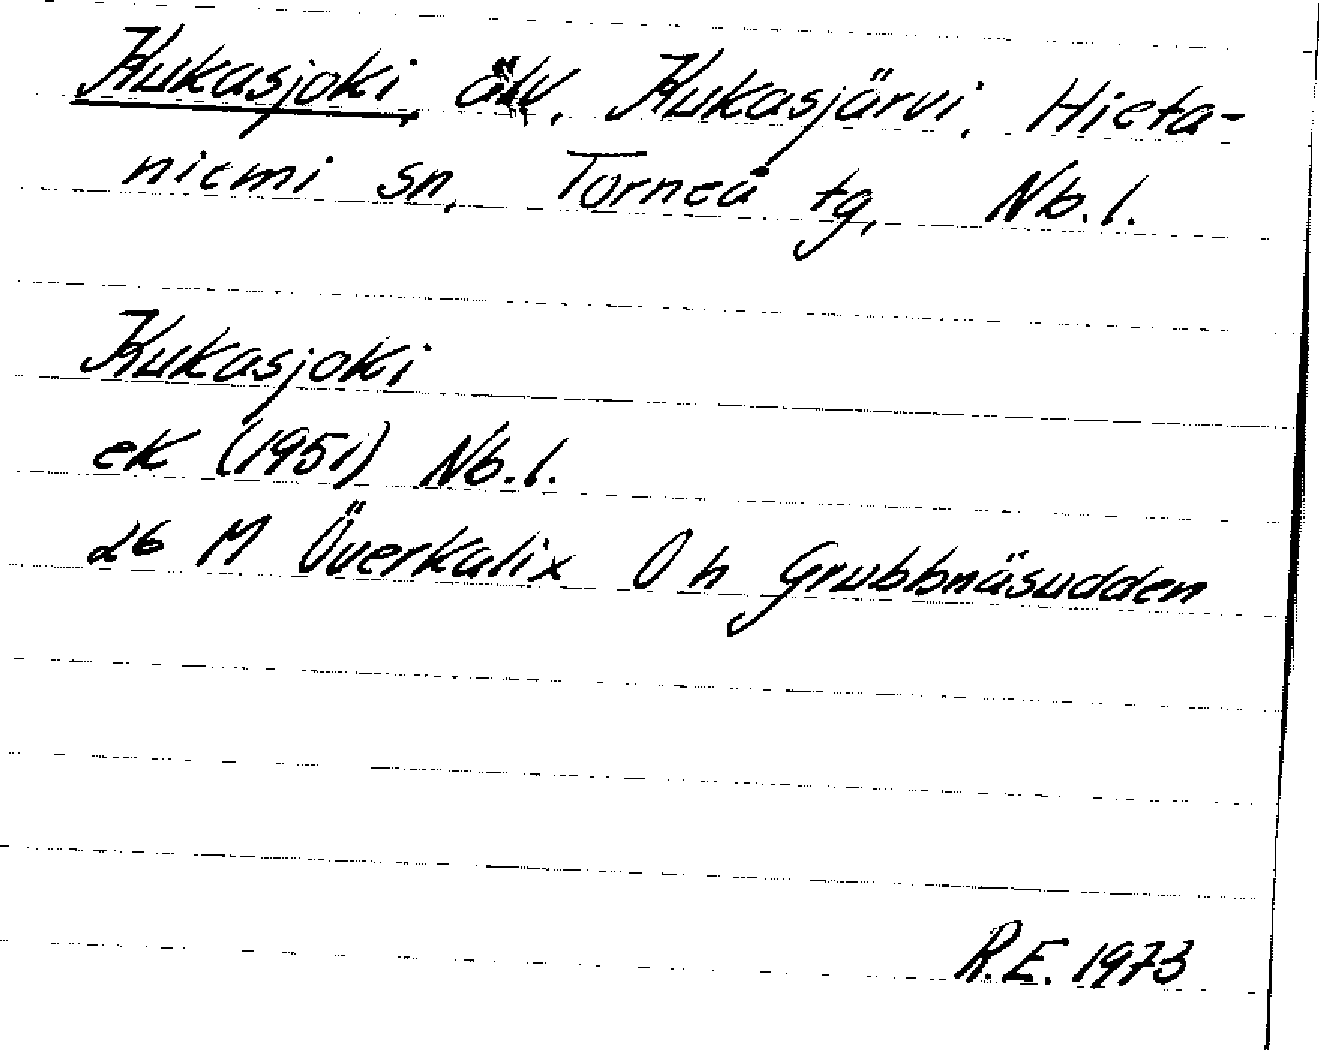 Kukasjoki, älv, Kukasjärvi, Hieta-
niemi sn, Torneå tg, Nb. l.
Kukasjoki
ek (1951) Nb. l.
26 M Överkalix Ö h Grubbnäsudden
R.E. 1973